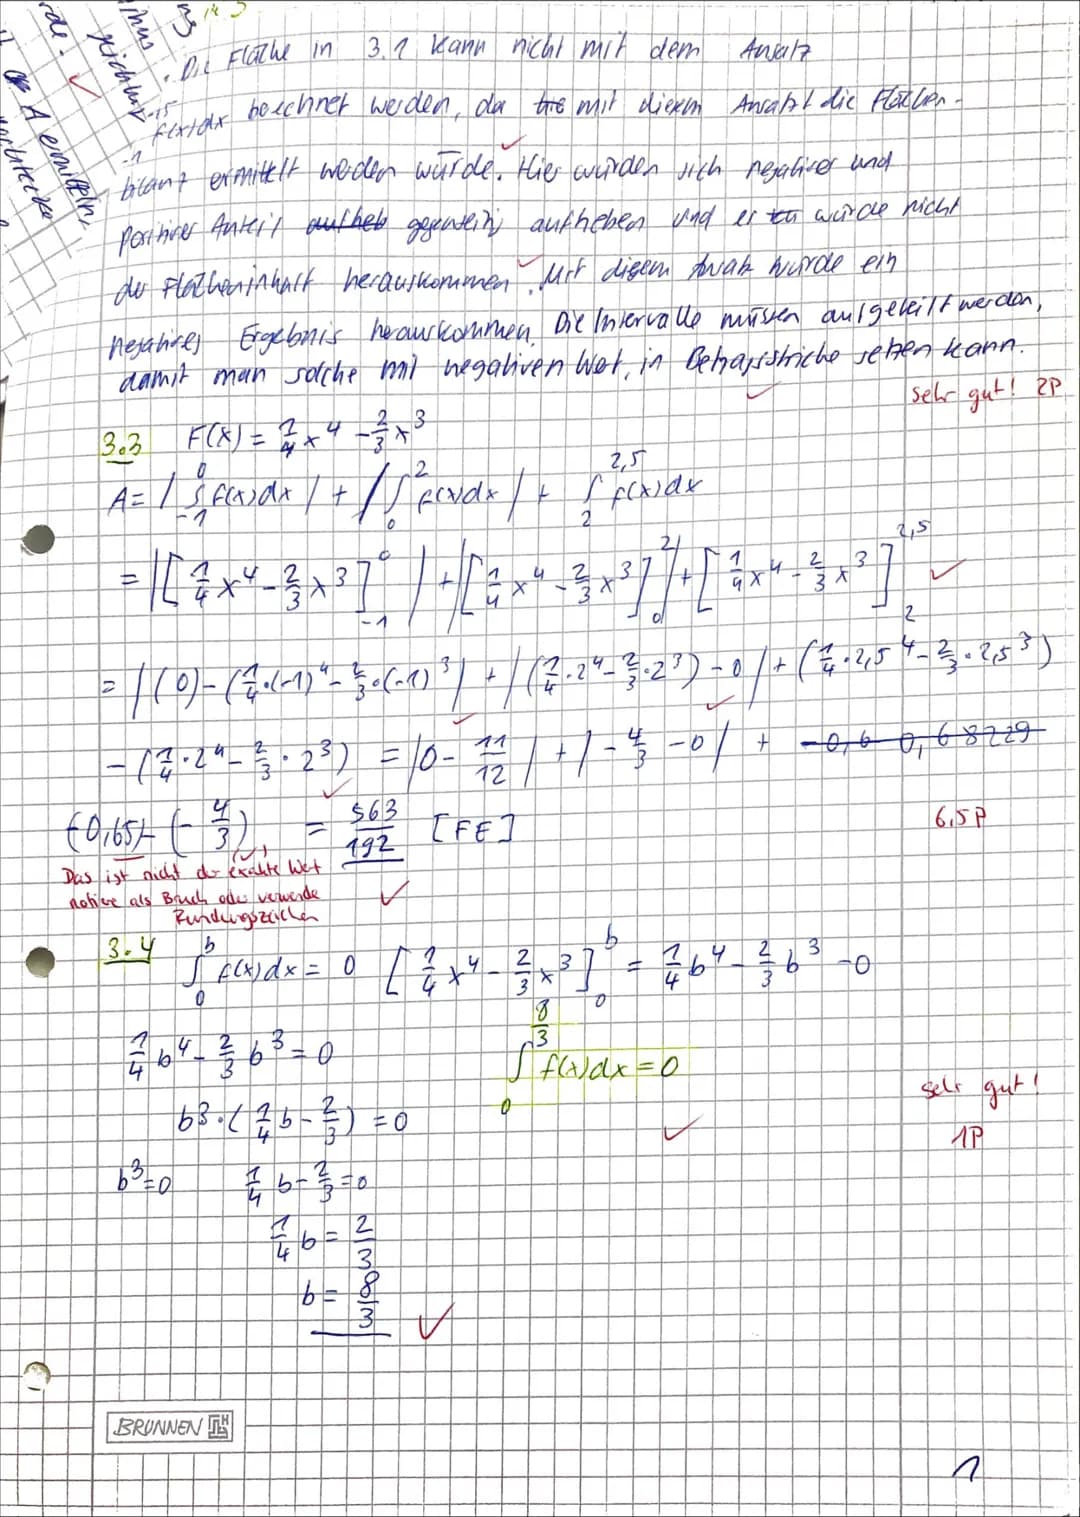 Die Fläche in 3.1 kann nicht mit dem Ansatz
∫ f(x)dx berechnet werden, da mit diesem Ansatz die Flächen-
bilanz ermittelt werden würde. Hier würden sich negativer und
positiver Anteil gegenseitig aufheben und es würde nicht
der Flächeninhalt herauskommen. Mit diesem Ansatz würde ein
negatives Ergebnis herauskommen. Die Intervalle müssen aufgeteilt werden,
damit man solche mit negativen Wert, in Betragsstriche setzen kann.
sehr gut! 2P
3.3 F(x) = 1/4 x^4 - 2/3 x^3
A = |∫_{-1}^{0} f(x)dx| + |∫_{0}^{2} f(x)dx| + ∫_{2}^{2,5} f(x)dx
= |[1/4 x^4 - 2/3 x^3]_{-1}^{0}| + |[1/4 x^4 - 2/3 x^3]_{0}^{2}| + [1/4 x^4 - 2/3 x^3]_{2}^{2,5}
= |(0) - (1/4·(-1)^4 - 2/3·(-1)^3)| + |(1/4·2^4 - 2/3·2^3) - 0| + (1/4·2,5^4 - 2/3·2,5^3)
- (1/4·2^4 - 2/3·2^3) = |0 - 11/12| + |-4/3 - 0| + -0,6 0,68229
(-0,65) - (-4/3) = 563/192 [FE]
6,5P
Das ist nicht der exakte Wert
notiere als Bruch oder verwende
Rundungszeichen
3.4 ∫_{0}^{b} f(x)dx = 0 [1/4 x^4 - 2/3 x^3]_{0}^{b} = 1/4 b^4 - 2/3 b^3 - 0
1/4 b^4 - 2/3 b^3 = 0
∫_{0}^{8/3} f(x)dx = 0
b^3·(1/4 b - 2/3) = 0
sehr gut!
1P
b^3=0 1/4 b - 2/3 = 0
1/4 b = 2/3
b = 8/3
BRUNNEN
1